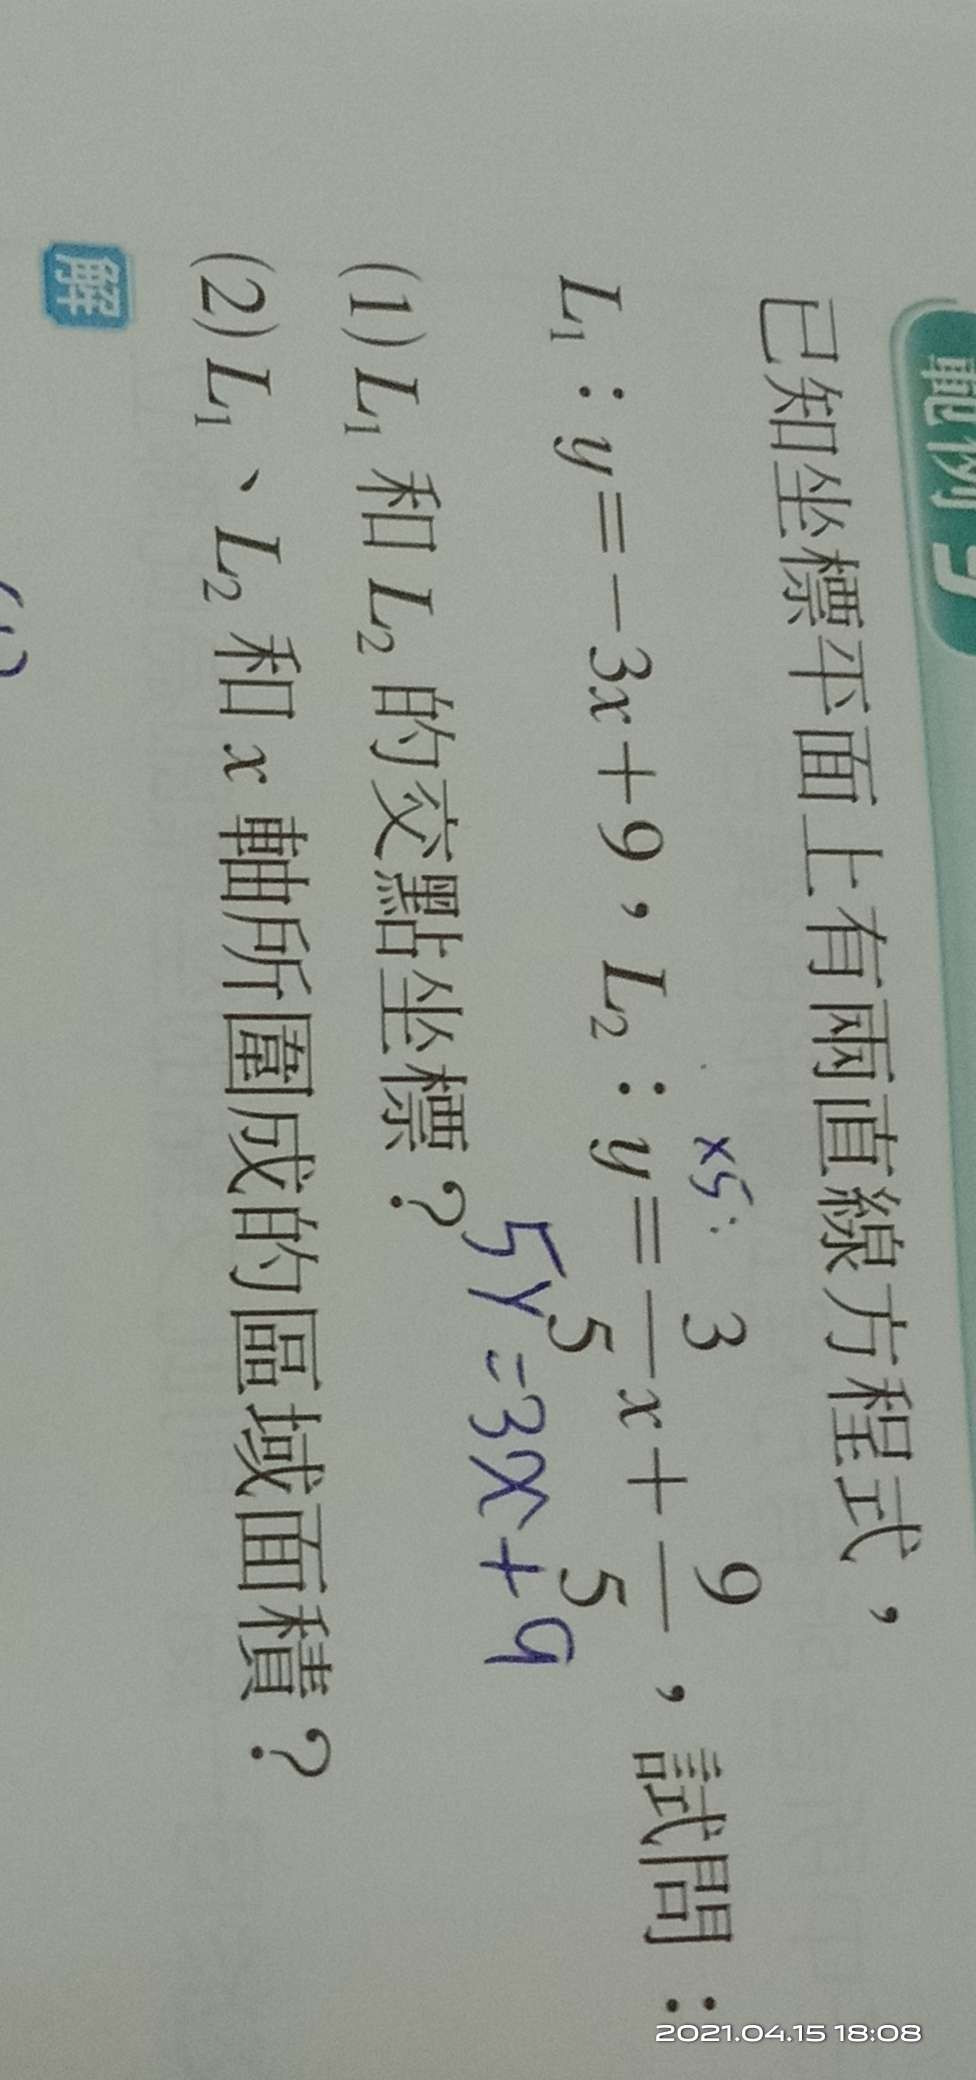 範例 9
已知坐標平面上有兩直線方程式，
x5:
L₁：y＝－3x＋9，L₂：y＝3/5x＋9/5，試問：
5y=3x+9
(1) L₁ 和 L₂ 的交點坐標？
(2) L₁、L₂ 和 x 軸所圍成的區域面積？
解
2021.04.15 18:08